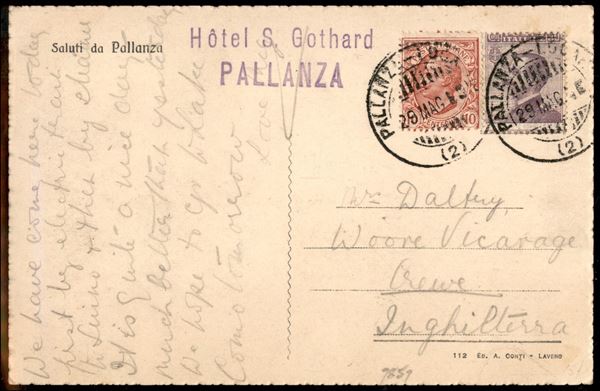 Saluti da Pallanza
Hôtel S. Gothard
PALLANZA
We have come here today
first by electric tram
to Luino & then by chaine
It is quite a nice day
much better than yesterday
We hope to go to Lake
Como tomorrow
Love
PALLANZA
28 MAG
(2)
10
PALLANZA
28 MAG
(2)
Daltry
Woore Vicarage
Crewe
Inghilterra
7859
112 ED. A. CONTI - LAVENO